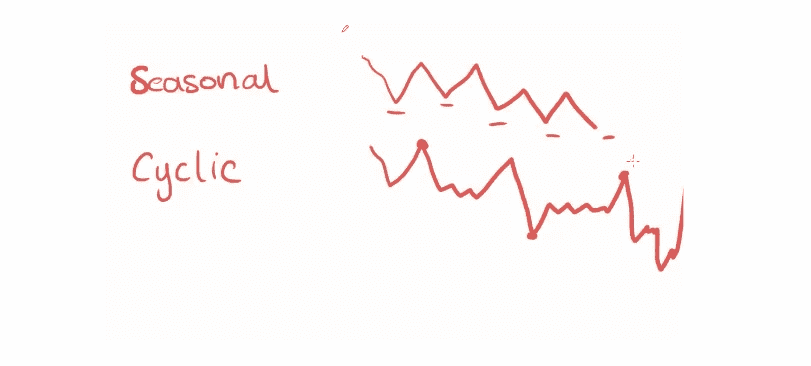 Seasonal
Cyclic